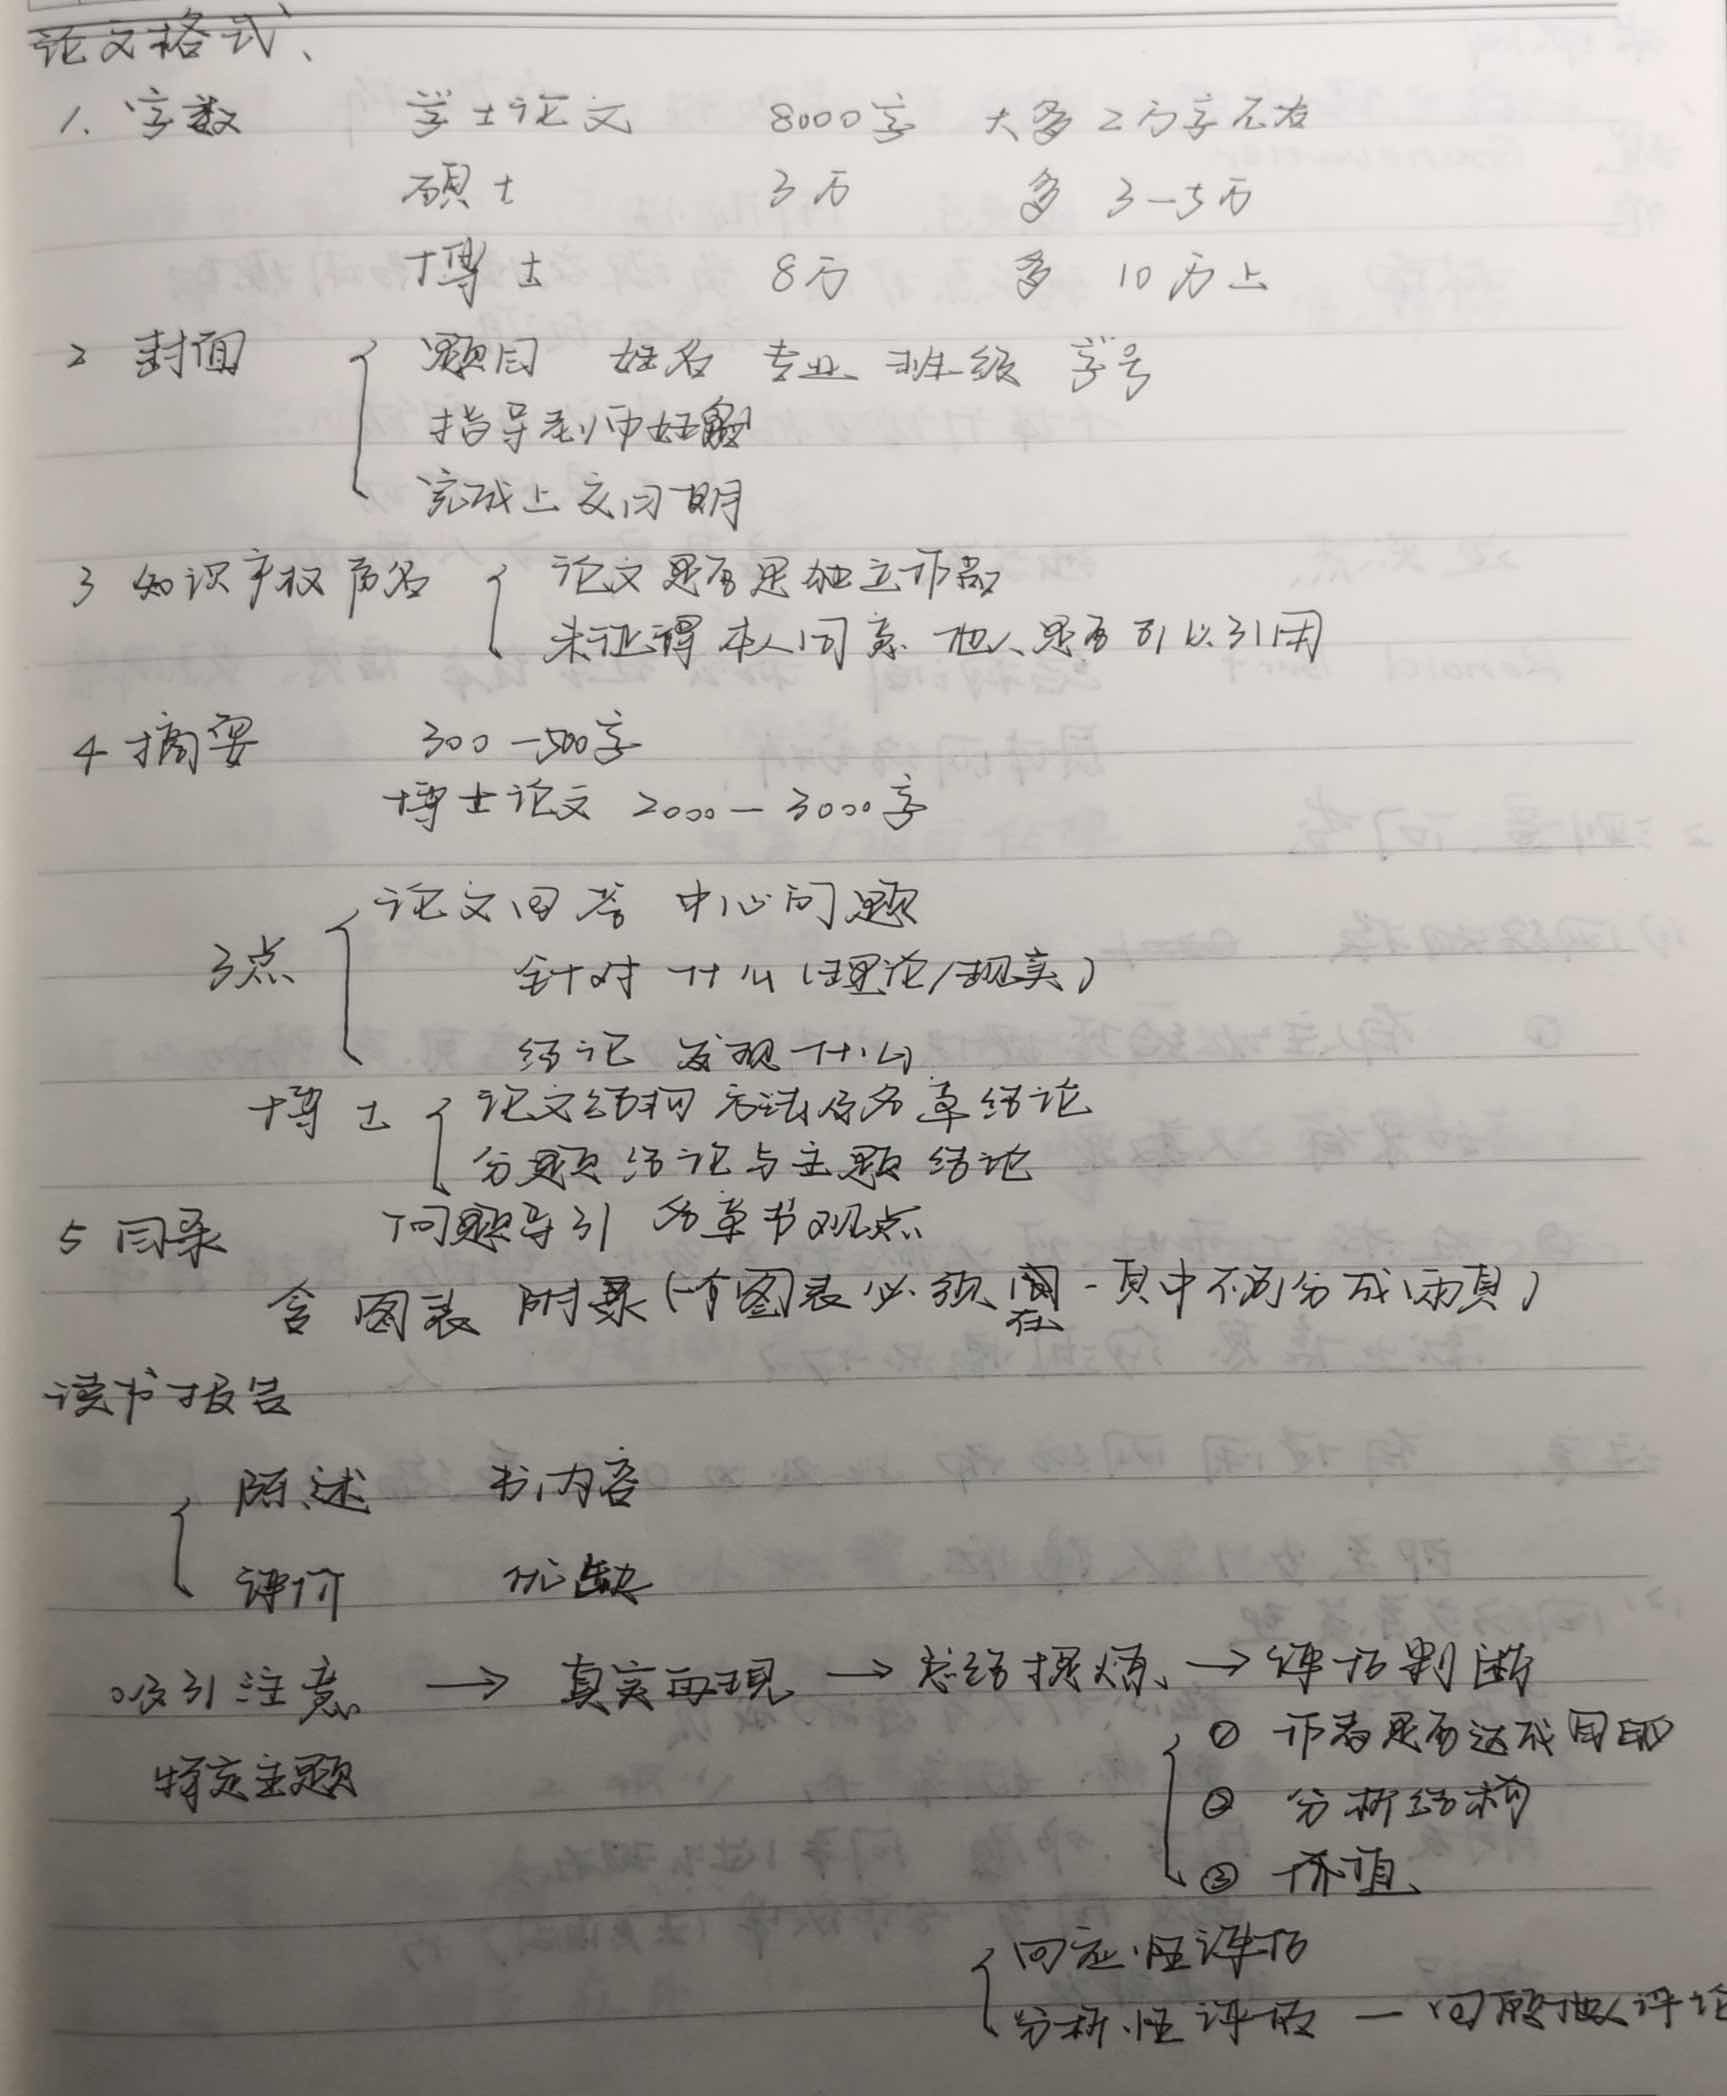 论文格式、
1. 字数 学士论文 8000字 大多2万字左右
硕士 3万 多 3-5万
博士 8万 多 10万上
2 封面 题目 姓名 专业 班级 学号
指导老师姓名
完成上交日期
3 知识产权 声名 论文是否是独立作品
未征得本人同意 他人是否可以引用
4 摘要 300-500字
博士论文 2000-3000字
论文回答 中心问题
3点 针对 什么(理论/现实)
结论 发现什么
博士 论文结构 方法及各章结论
分题结论与主题结论
5 目录 问题导引 各章节观点
含 图表 附录(一个图表必须在一页中不可分成两页)
读书报告
陈述 书内容
评价 优缺
吸引注意 → 真实再现 → 总结提炼、→ 评估判断
特定主题 ① 作者是否达成目的
② 分析结构
③ 价值
回应性评估
分析性评估 - 回顾他人评论